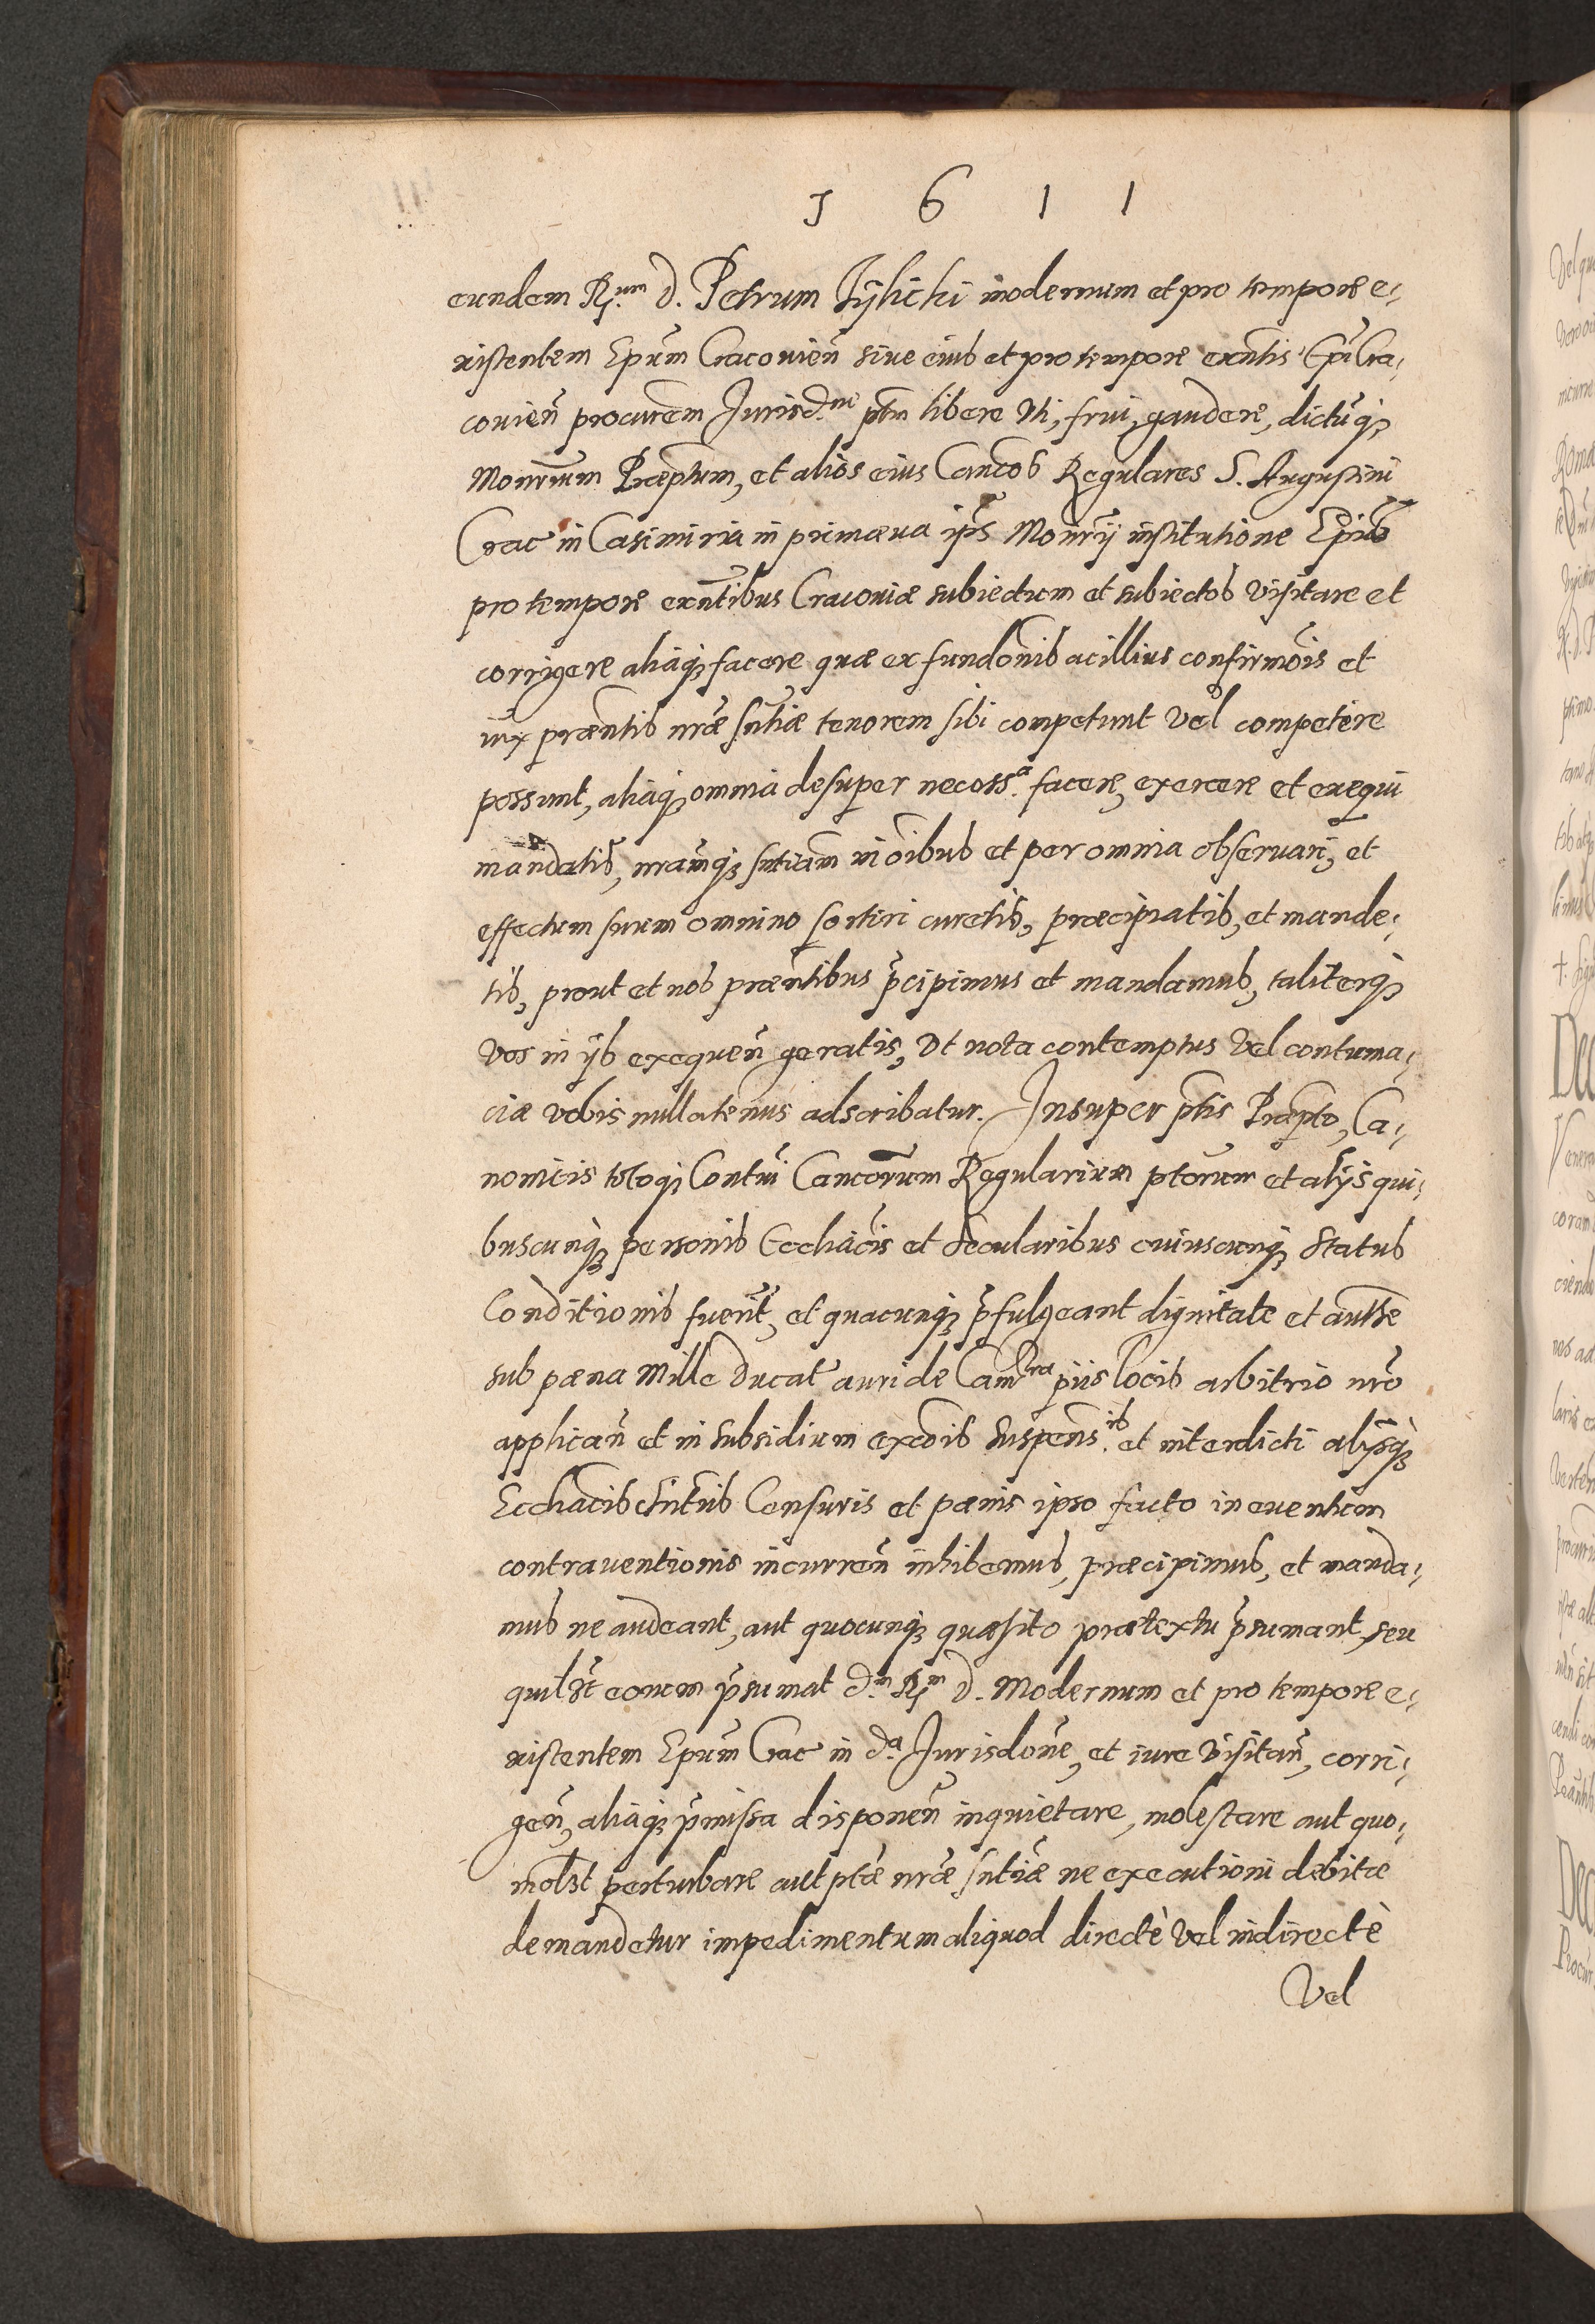 1 6 1 1
eundem R.um d. Petrum Tylicki modernum et pro tempore e-
xistentem Epũm Cracovieñ sive eius et pro tempore exñtis Epĩ Cra-
covieñ procurem Jurisd.ne ptm libere uti, frui, gaudere, dictũq;
Monrium Præptum, et alios eius Cancos Regulares S. Augustini
Crac in Casimiria in primæva ips Monrij institutione Epis
pro tempore exñtibus Cracoviæ subiectum et subiectos visitare et
corrigere aliaq; facere quæ ex fundõnib ac illius confirmõis et
iux præntis nræ sñtiæ tenorem sibi competunt vel competere
possunt, aliaq; omnia desuper necess.a facere, exercere et exequi
mandatis, nramq; sntiam in oĩbus et per omnia observari, et
effectum suum omnino sortiri curetis, præcipiatis, et mande-
tis, prout et nos præntibus p̃cipimus et mandamus, taliterq;
vos in ijs exequeñ geratis, ut nota contemptus vel contuma-
ciæ vobis nullatenus adscribatur. Insuper ptis Præpto, Ca-
nonicis totoq; Contui Cancorum Regularium ptorum et alijs qui-
buscunq; personis Ecchiacis et secularibus cuiuscunq; status
Conditionis fuerit, et quacunq; p̃fulgeant dignitate et authe
sub pæna Mille Ducat auri de Cam.ra piis locis arbitrio nrõ
applicañ et in subsidium excõis suspens.is et interdicti alijsq;
Ecchiacis sñtiis Censuris et pænis ipso facto in eventum
contraventionis incurreñ inhibemus, præcipimus, et manda-
mus ne audeant, aut quocunq; quæsito prætextu p̃sumant, seu
quilbt eorum p̃sumat d.m R.m d. Modernum et pro tempore e-
xistentem Epũm Crac in d.a Jurisdõne, et iure visitañ, corri-
geñ, aliaq; p̃missa disponeñ inquietare, molestare aut quo-
molbt perturbare aut ptæ nræ sntiæ ne executioni debitæ
demandetur impedimentum aliquod directè vel indirectè
Vel